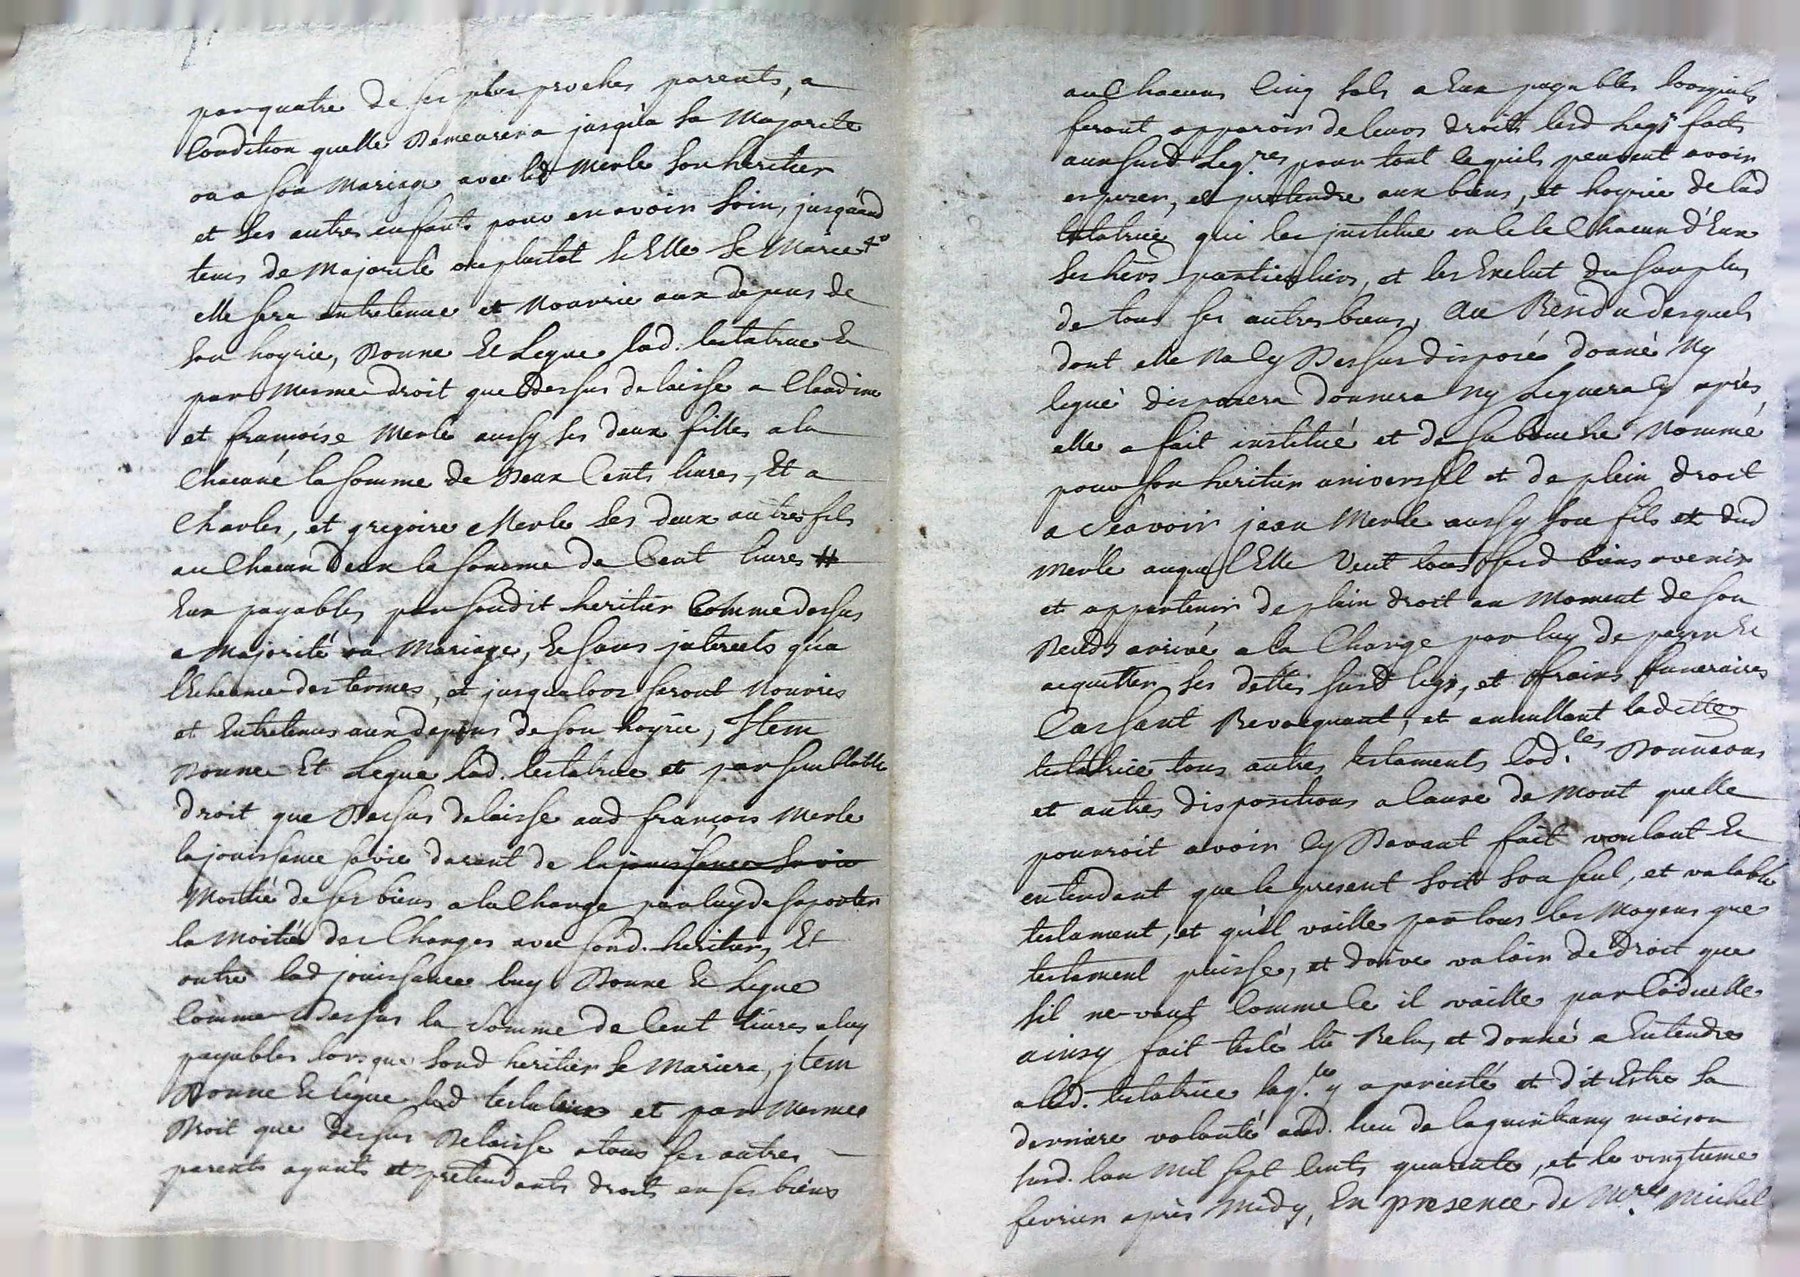 par quatre de ses plus proches parents, a
Condition quelle Demeurera jusqu'a sa Majorité
ou a son Mariage avec led Merle son heritier
et ses autres enfants pour en avoir soin, jusquaud
tems de Majorité ou plustot si Elle se Marie
elle sera entretenue et Nourrie aux depens de
son hoyrie, Donne Et Legue lad. testatrice Et
par Mesme droit que Dessus delaisse a Claudine
et françoise Merle aussy ses deux filles a la
Chacune la somme de Deux Cents livres, Et a
Charles, et gregoire Merle ses deux autres fils
au Chacun Deux la somme de Cent livres #
Eux payables par sondit heritier Comme dessus
a Majorité ou Mariage, Et sans jnterets qu'a
l'Echeance des termes, et jusqualors seront Nourris
et Entretenus aux depens de son hoyrie, Item
Donne Et Legue lad. testatrice et par semblable
droit que Dessus delaisse aud françois Merle
la jouissance sa vie durant de la jouissance sa vie
Moitié de ses biens a la Charge par luy de suporter
la Moitié des Charges avec sond. heritier, Et
outre lad jouissance luy Donne Et Legue
Comme Dessus la somme de Cent livres a luy
payables lors que sond heritier se Mariera, jtem
Donne Et legue lad testatrice et par Mesme
Droit que dessus Delaisse a tous ses autres
parents ayants et pretendants droits en ses biens
au Chacun Cinq sols a Eux payables lorsquils
feront apparoir de leurs droits lesd legs faits
aux susd Leg.res pour tout ce quils peuvent avoir
esperer, et pretendre aux biens, et hoyrie de lad
testatrice qui les jnstitue en ce le Chacun d'Eux
ses hers particuliers, et les Exclut du surplus
de tous ses autres biens, Au Residu desquels
dont elle Na Cy Dessus disposé donné Ny
legué disposera donnera Ny Leguera Cy après,
elle a fait institué et de sa bouche Nommé
pour son heritier universel et de plein droit
a scavoir jean Merle aussy son fils et dud
Merle auquel Elle Veut tous sesd biens avenir
et appartenir de plein droit au Moment de son
Deceds arrivé a la Charge par luy de payer Et
acquitter ses dettes susd legs, et frais funeraires
Cassant Revocquant, et annullant ladite
testatrice tous autres testaments Cod.les Donnaons
et autres dispositions a Cause de Mort quelle
pourroit avoir Cy Devant fait voulant Et
entendant que le present soit son seul, et valable
testament, et qu'il vaille par tous les Moyens que
testament puisse, et doive valoir de Droit que
sil ne vaut Comme Ce il vaille par Codicille
ainsy fait testé lû Relu, et donné a Entendre
a lad. testatrice laq.le y a persisté et dit Estre sa
derniere volonté aud. lieu de laguimbany maison
susd. lan Mil sept Cents quarente, et le vingtieme
fevrier après Midy, En presence de Mre. Michel